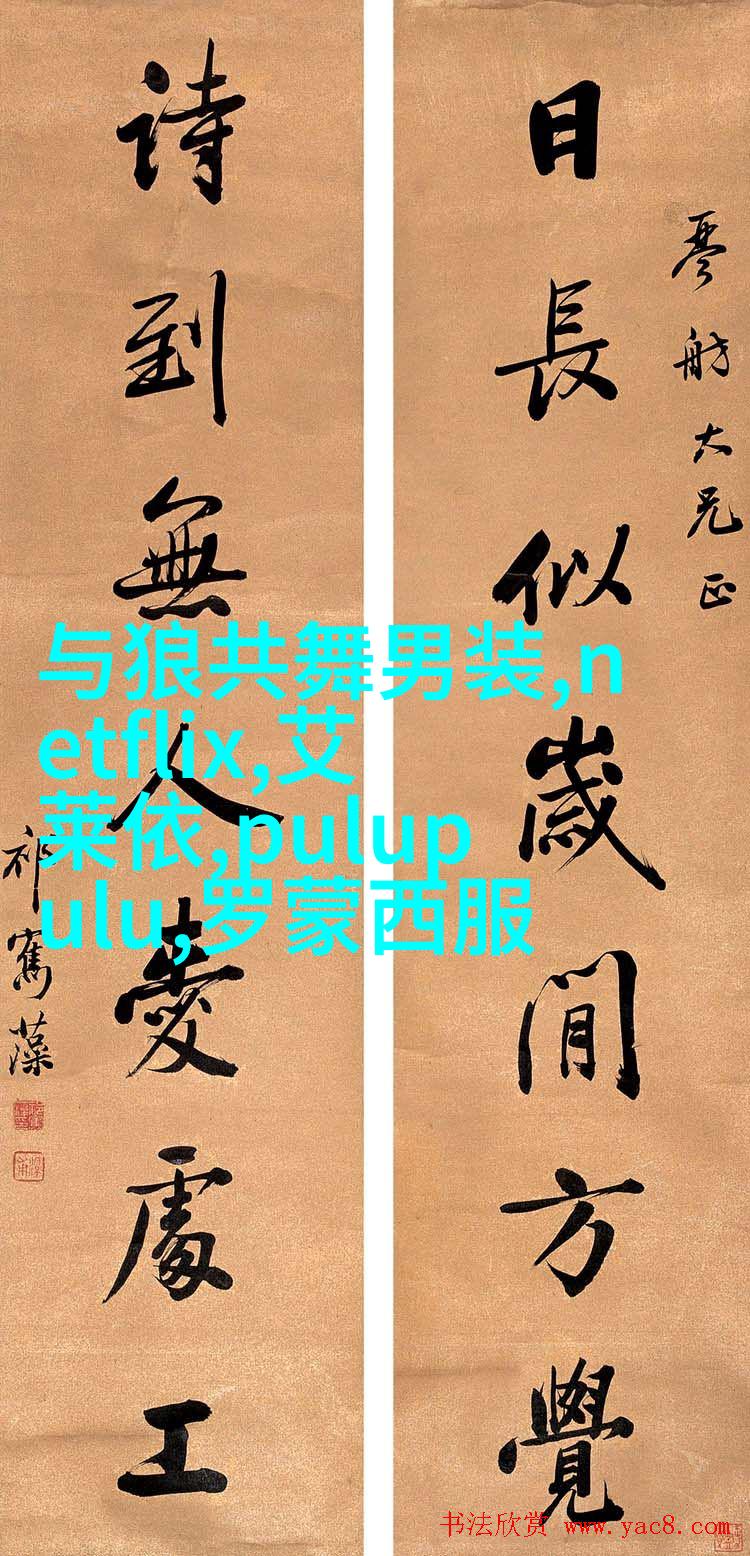 日長似歲閒方覺
琴舫大兄正
詩到無人愛處工
祁寯藻
与狼共舞男装,n
etflix,艾
莱依,pulup
ulu,罗蒙西服
书法欣赏 www.yac8.com